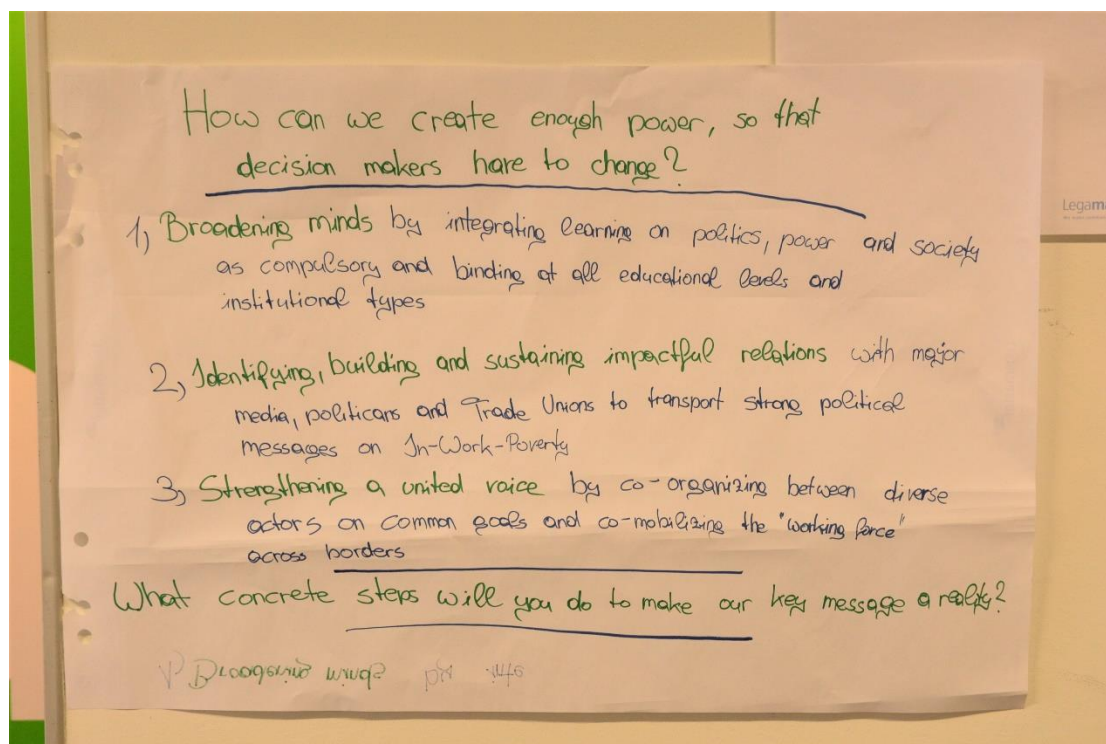 How can we create enough power, so that
decision makers have to change?
1, Broadening minds by integrating learning on politics, power and society
as compulsory and binding at all educational levels and
institutional types
2, Identifying, building and sustaining impactful relations with major
media, politicans and Trade Unions to transport strong political
messages on In-Work-Poverty
3, Strengthening a united voice by co-organizing between diverse
actors on common goals and co-mobilizing the "working force"
across borders
What concrete steps will you do to make our key message a reality?
Broadening minds by
Legam